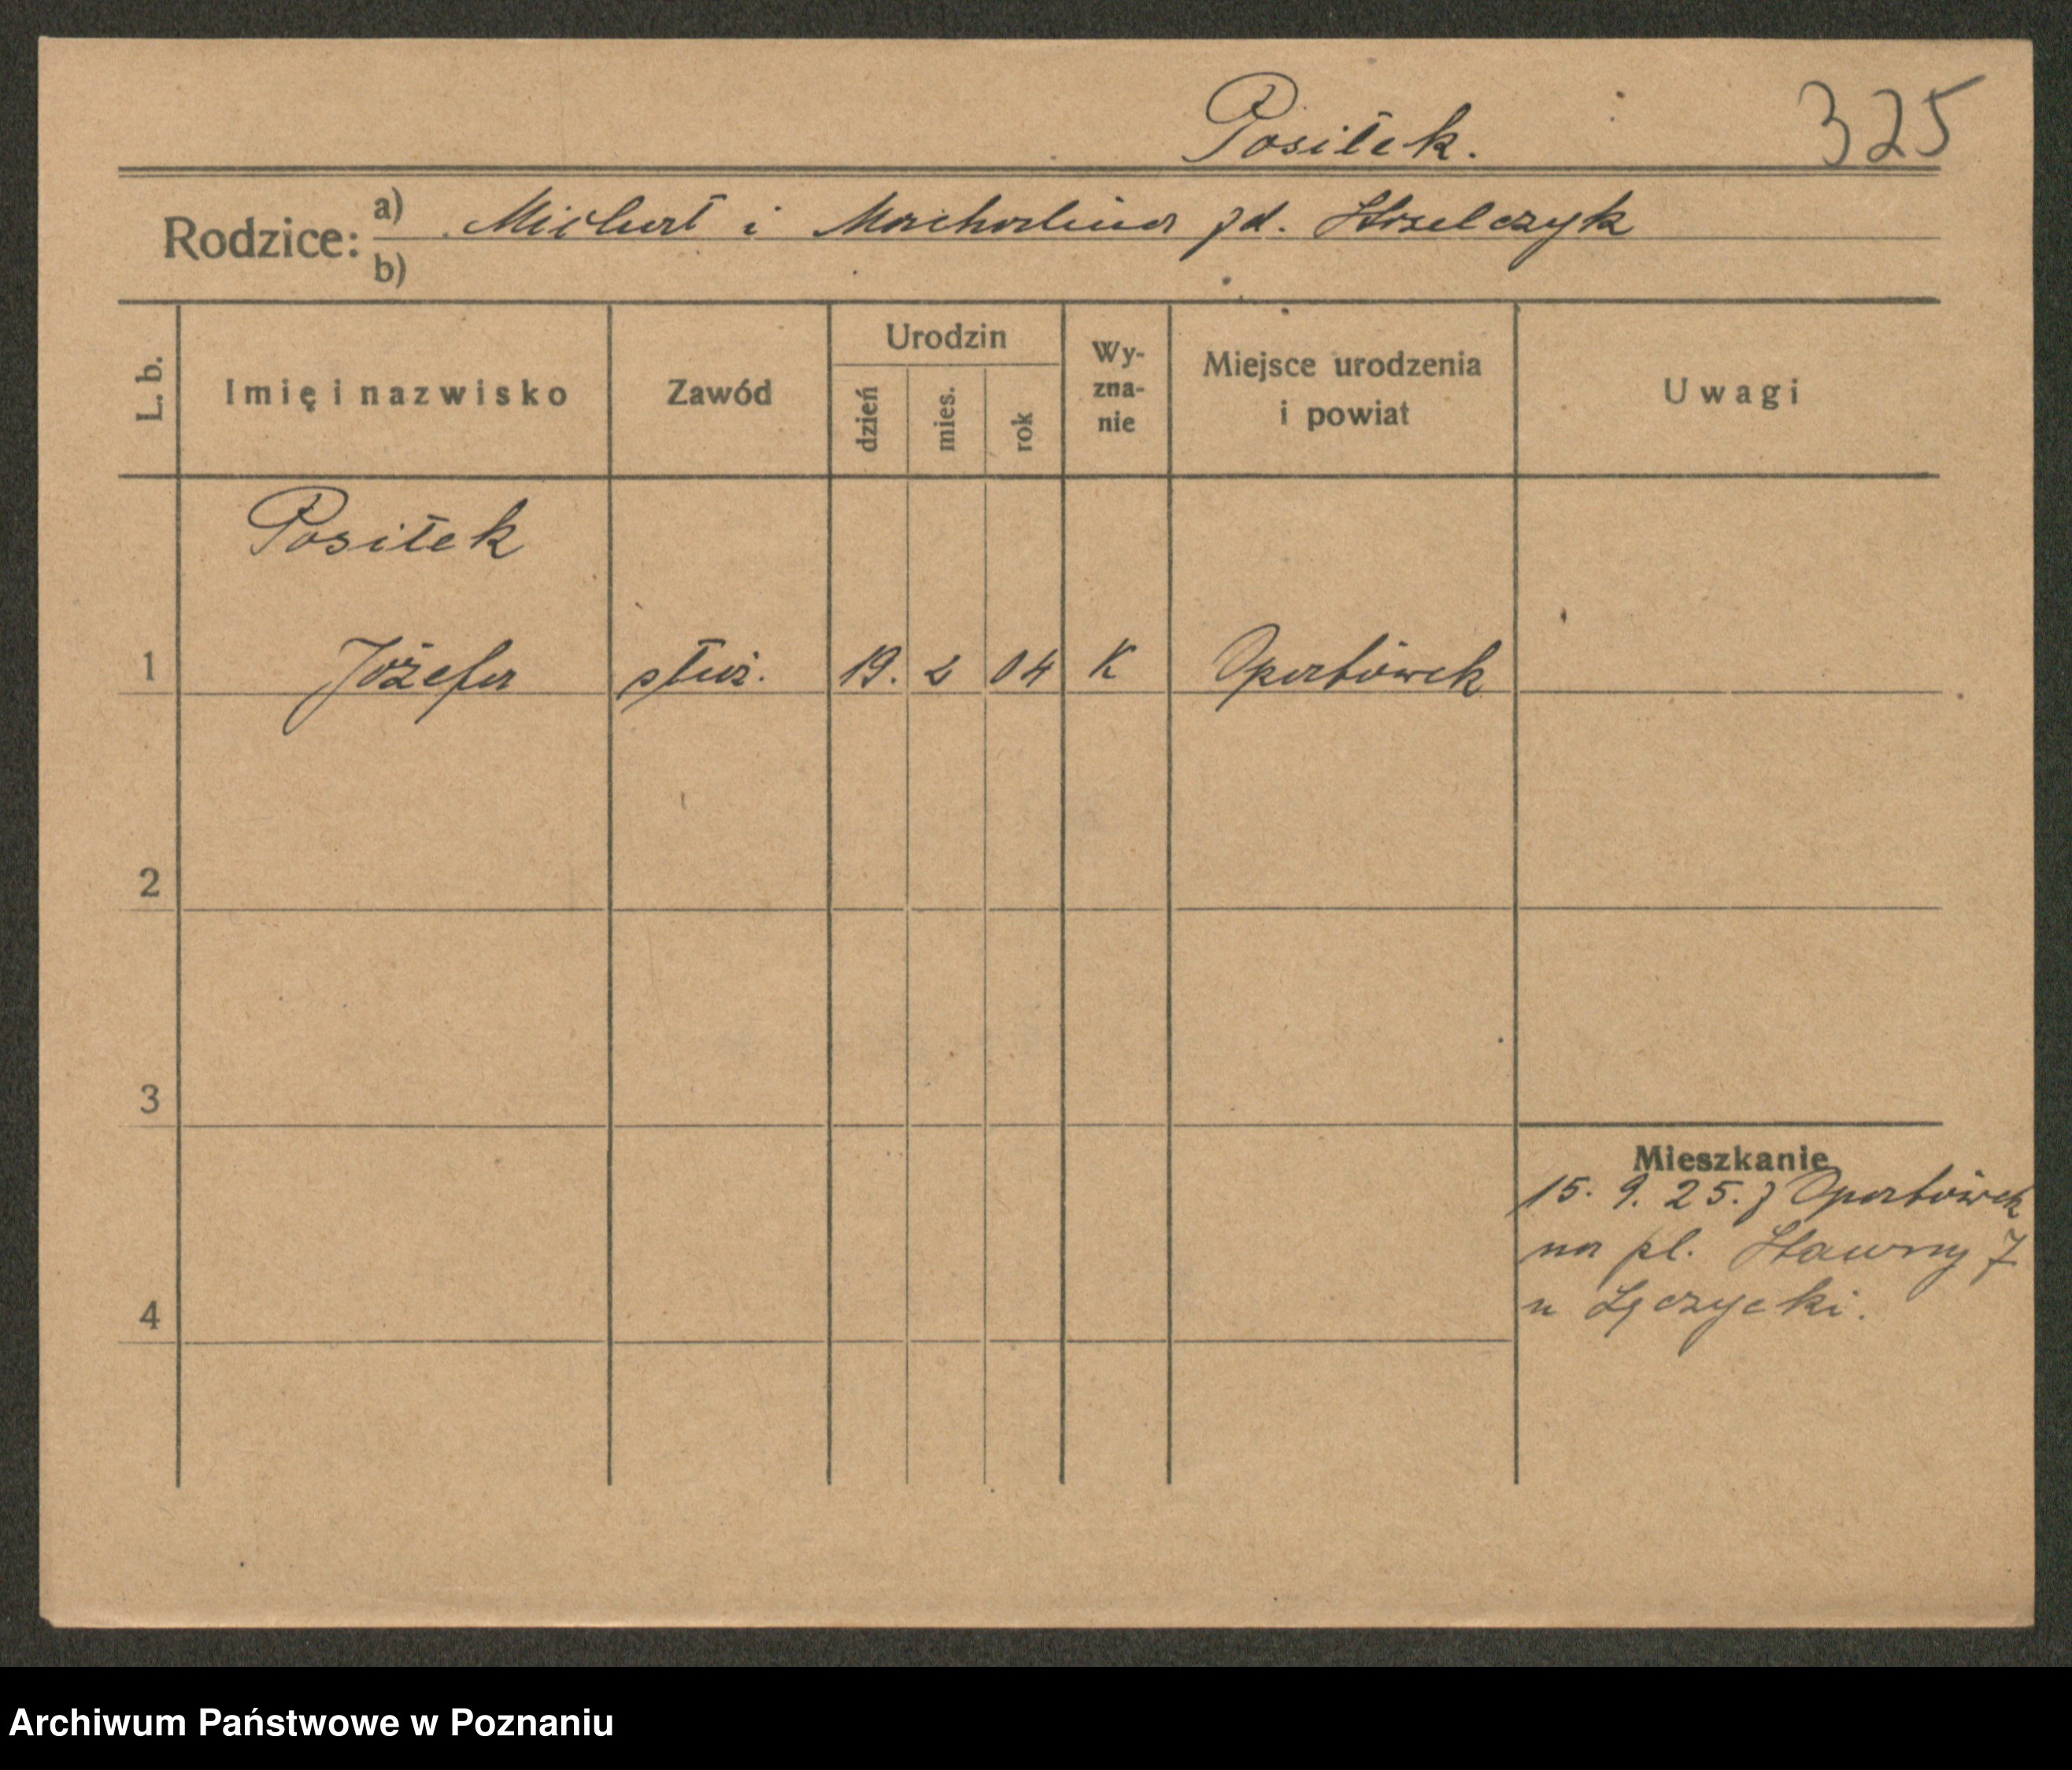 Posiłek.
325
Rodzice: a) Michał i Machalina zd. Strzelczyk
b)
L. b.
Imię i nazwisko
Zawód
Urodzin
dzień
mies.
rok
Wy-
zna-
nie
Miejsce urodzenia
i powiat
Uwagi
Posiłek
1 Józefa służ. 19. 2 04 K Oporówek
2
3
4
Mieszkanie
15. 9. 25. z Oporówek
na pl. Stawny 7
u Łęczycki.
Archiwum Państwowe w Poznaniu